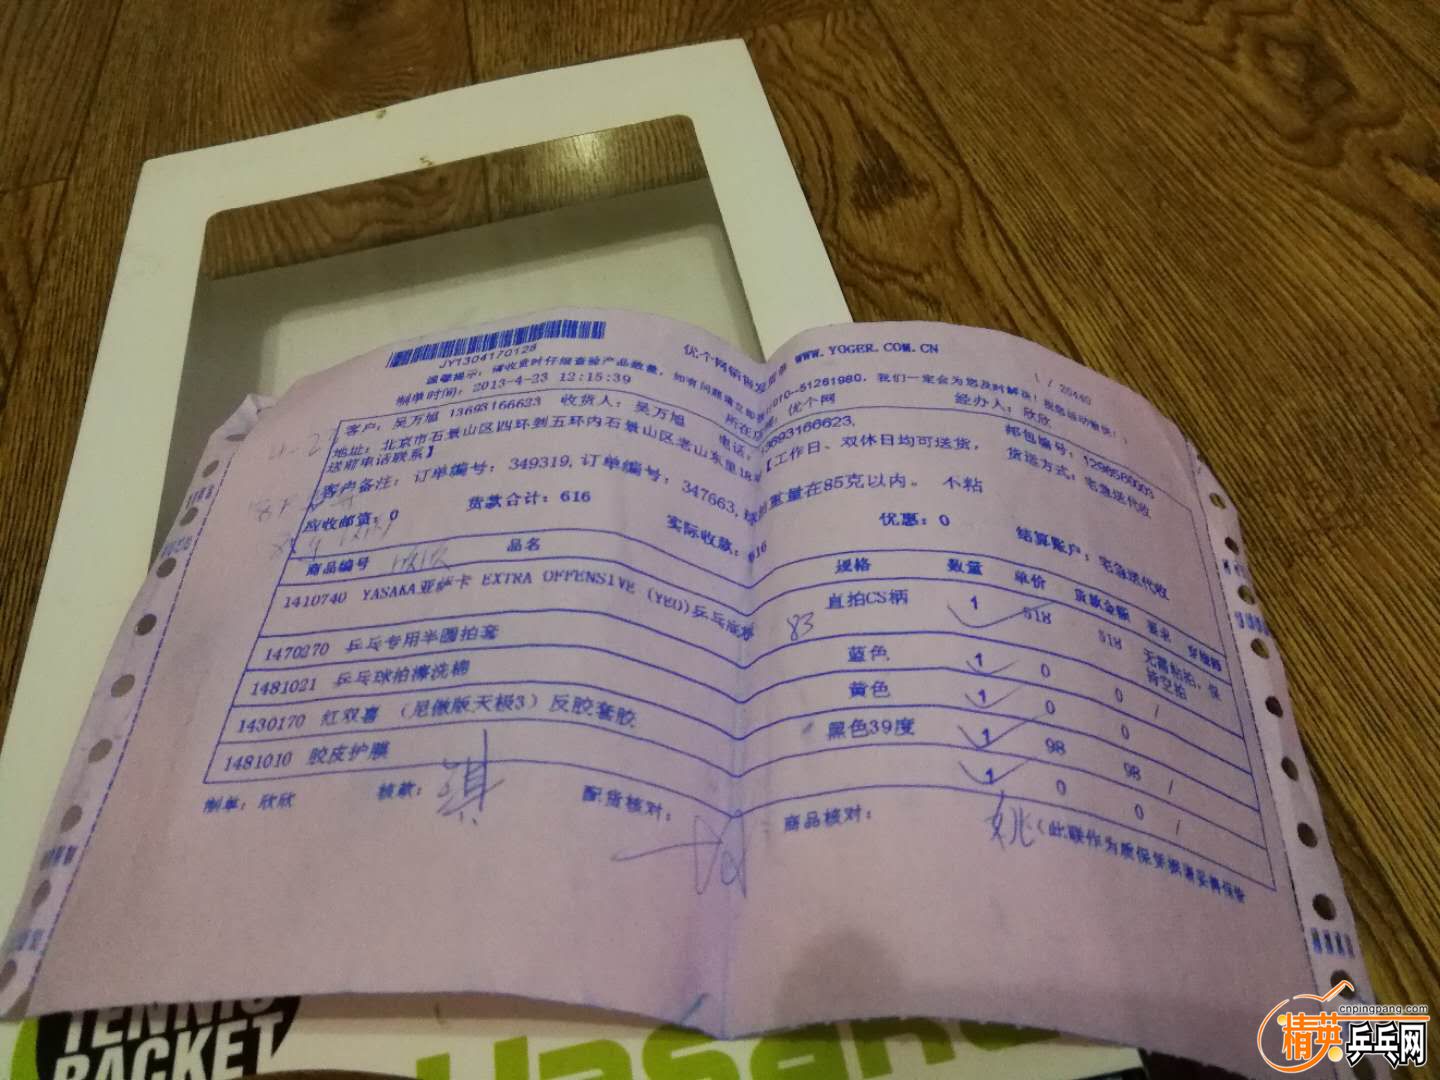 JY1304170128
WWW.YOGER.COM.CN
1 / 20440
温馨提示：请收货时仔细查验产品数量，如有问题请立即
010-51281980，我们一定会为您及时解决！祝您运动愉快！）
制单时间：2013-4-23 12:15:39
优个网
经办人：欣欣
客户：吴万旭 13693166623 收货人：吴万旭 电话：13693166623,
邮包编号：1296560003
地址：北京市石景山区四环到五环内石景山区老山东里18
【工作日、双休日均可送货，
货运方式：宅急送代收
送前电话联系】
客户备注：订单编号：349319，订单编号：347663，
重量在85克以内。 不粘
应收邮资：0 货款合计：616 实际收款：616 优惠：0 结算账户：宅急送代收
商品编号 品名 规格 数量 单价 货款金额
1410740 YASAKA亚萨卡 EXTRA OFFENSIVE (YEO)乒乓底板 83 直拍CS柄 1 518 518
1470270 乒乓专用半圆拍套 蓝色 1 0 0 /
1481021 乒乓球拍擦洗棉 黄色 1 0 0
1430170 红双喜 （尼傲版天极3）反胶套胶 黑色39度 1 98 98 /
1481010 胶皮护膜 1 0 0 /
制单：欣欣 核款： 配货核对： 商品核对： 姚 (此联作为质保凭据请妥善保管
TENNIS
RACKET
cnpingpang.com
精英乒乓网